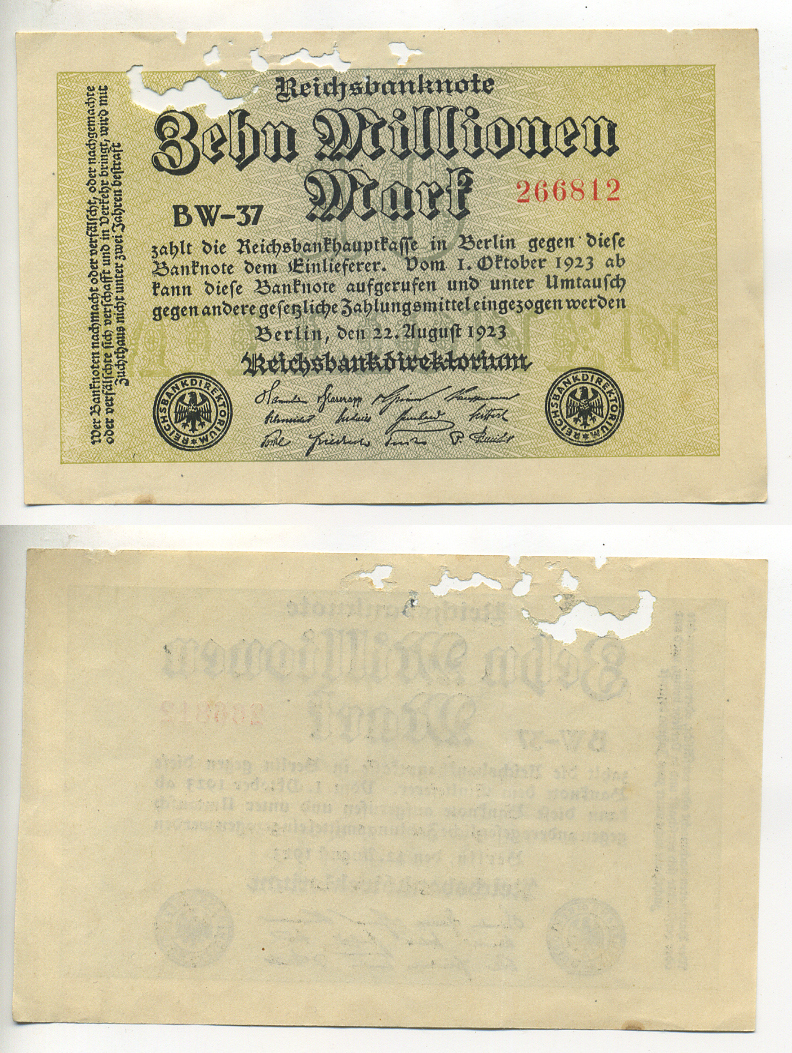 Reichsbanknote
Zehn Millionen
Mark
BW-37
266812
zahlt die Reichsbankhauptkasse in Berlin gegen diese
Banknote dem Einlieferer. Vom 1. Oktober 1923 ab
kann diese Banknote aufgerufen und unter Umtausch
gegen andere gesetzliche Zahlungsmittel eingezogen werden
Berlin, den 22. August 1923
Reichsbankdirektorium
REICHSBANKDIREKTORIUM
REICHSBANKDIREKTORIUM
Wer Banknoten nachmacht oder verfälscht, oder nachgemachte
oder verfälschte sich verschafft und in Verkehr bringt, wird mit
Zuchthaus nicht unter zwei Jahren bestraft